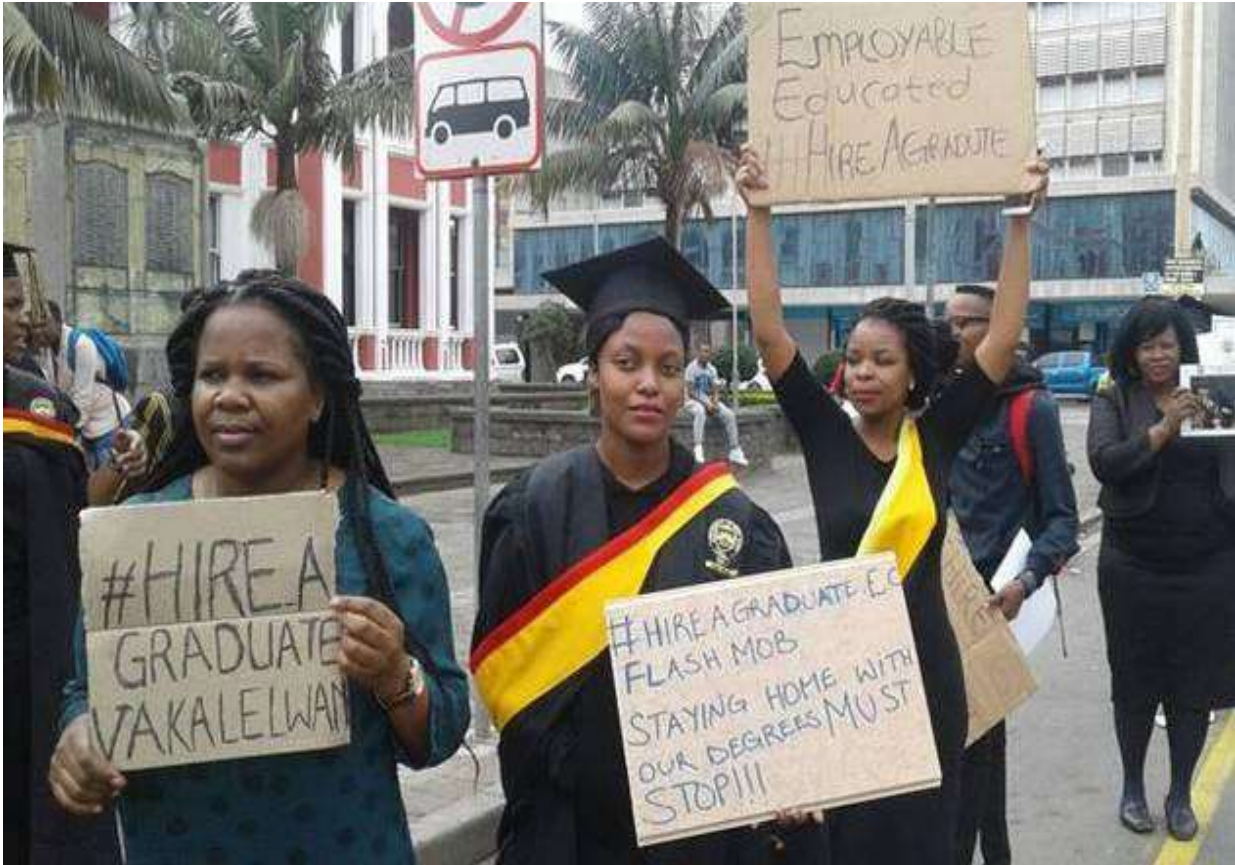 EMPLOYABLE
Educated
#HIRE AGRADUTE
#HIRE A
GRADUATE
VAKALELWAN
#HIRE A GRADUATE. EC
FLASH MOB
STAYING HOME WITH
OUR DEGREES MUST
STOP!!!